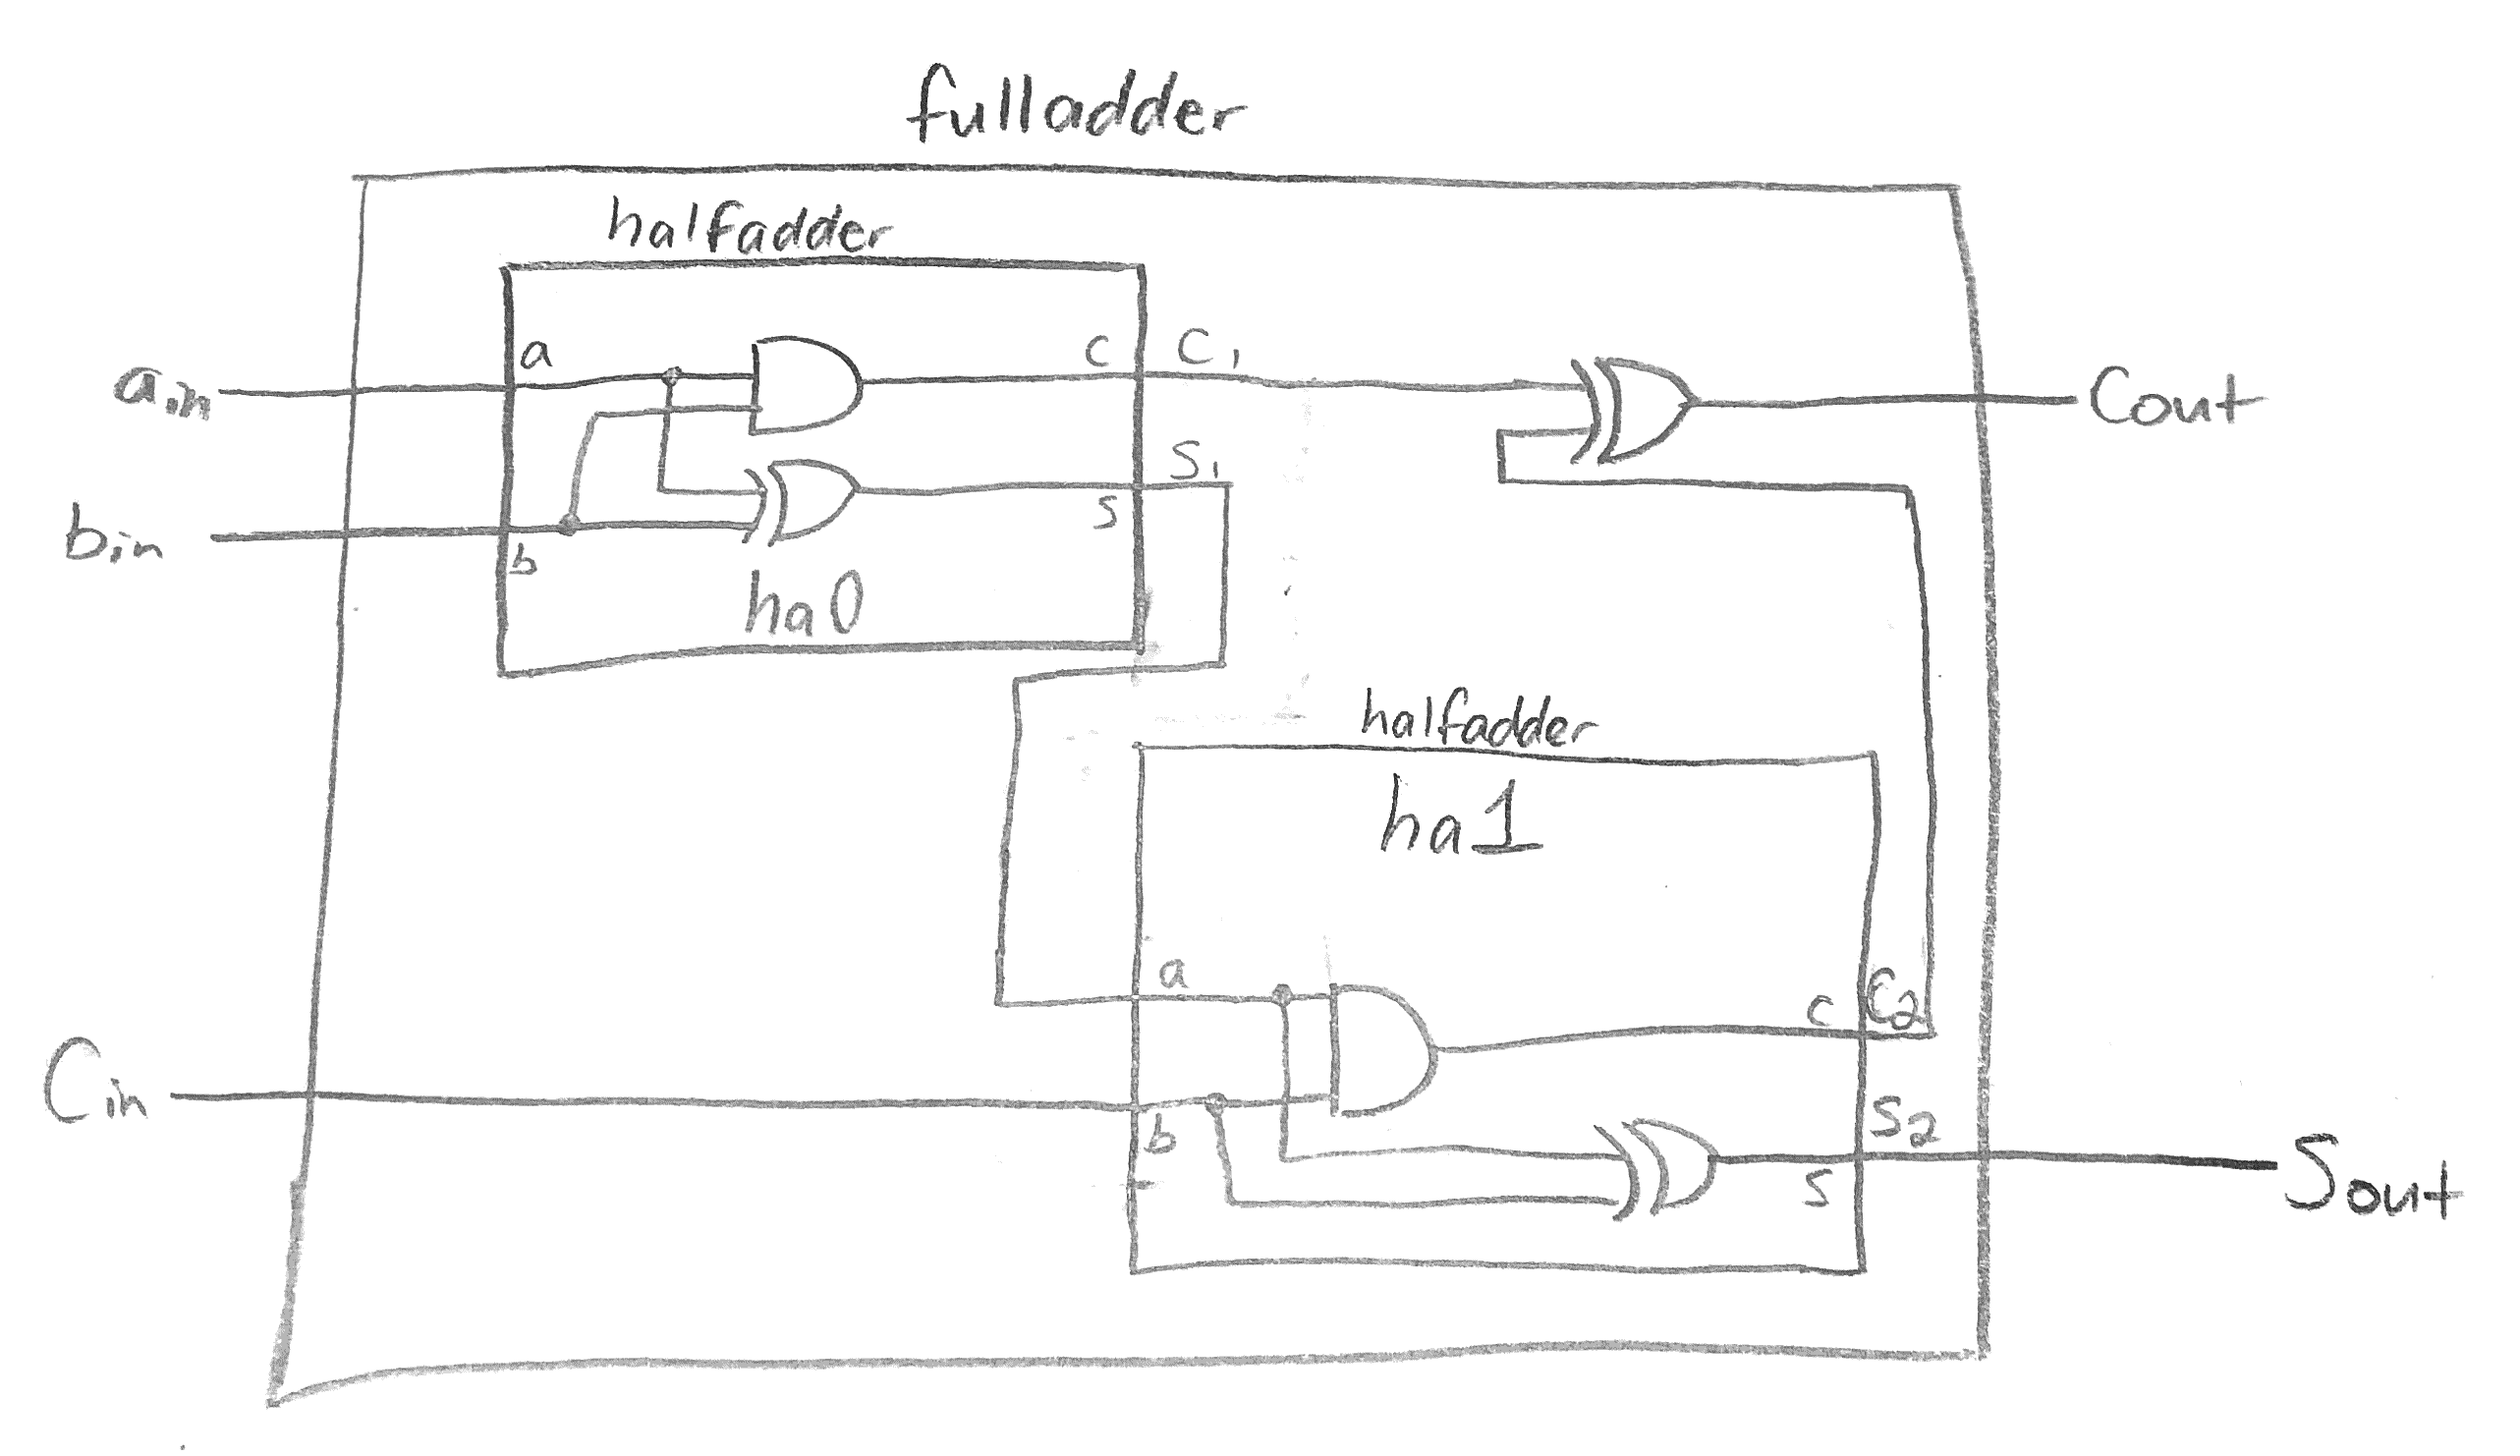 fulladder
halfadder
a c C1
ain Cout
S1
s
bin b
ha0
halfadder
ha1
a
c C2
Cin
b S2
s Sout